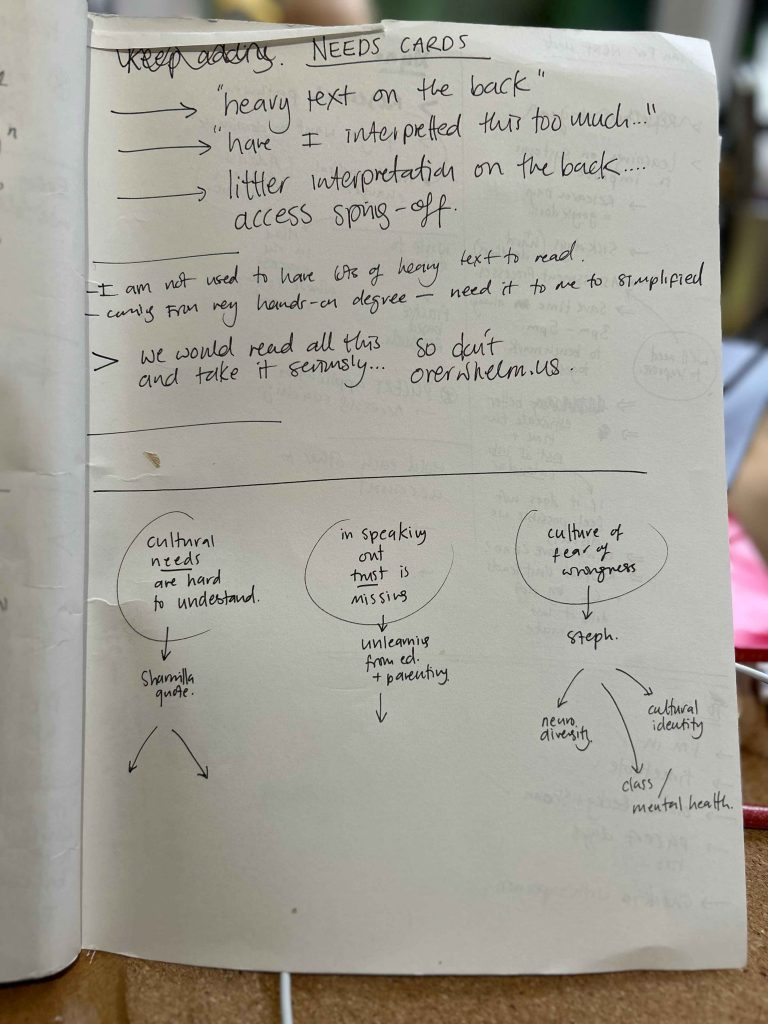 Keep adding. NEEDS CARDS
→ "heavy text on the back"
→ "have I interpretted this too much..."
→ littler interpretation on the back....
access spring-off.
- I am not used to have lots of heavy text to read.
- coming from very hands-on degree — need it to me to simplified
> we would read all this so don't
and take it seriously... overwhelm.us.
cultural
needs
are hard
to understand.
Sharmilla
quote.
in speaking
out
trust is
missing
unlearning
from ed.
+ parenting.
culture of
fear of
wrongness
Steph.
neuro
diversity.
class /
mental health.
cultural
identity